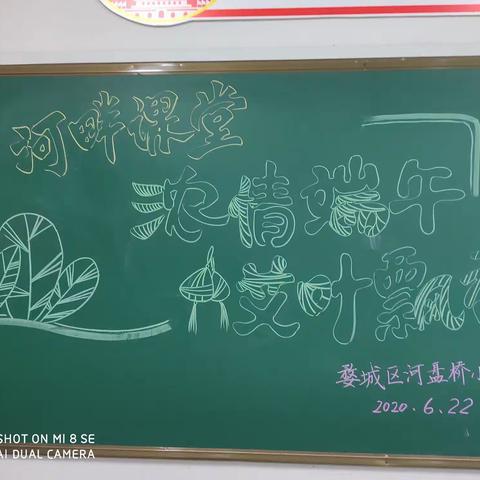 河畔课堂
浓情端午
艾叶飘
婺城区河盘桥小
2020.6.22
SHOT ON MI 8 SE
AI DUAL CAMERA